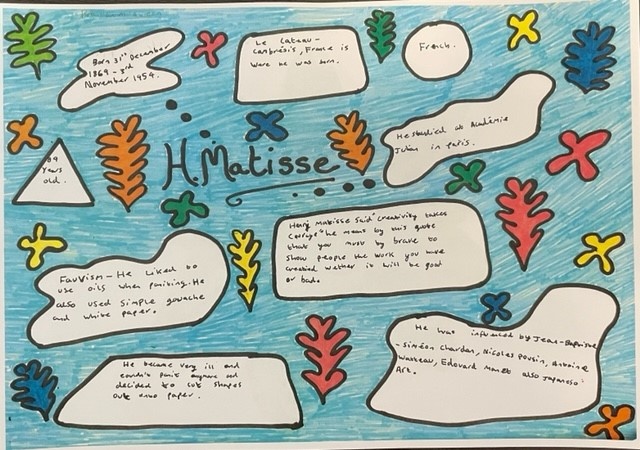 Born 31st December
1869 - 3rd
November 1954.
Le Cateau-
Cambrésis, France is
were he was born.
French.
He studied at Académie
Julian in paris.
84
years
old.
H.Matisse
Henry Matisse said "creativity takes
courage" he means by this quote
that you must by brave to
show people the work you have
created wether it will be good
or bad.
Fauvism - He liked to
use oils when painting. He
also used simple gouache
and white paper.
He became very ill and
couldn't paint anymore and
decided to cut shapes
out paper.
He was influenced by Jean-Baptiste
- Siméon Chardin, Nicolas Pousin, Antoine
Watteau, Edouard Manet also Japanese
Art.